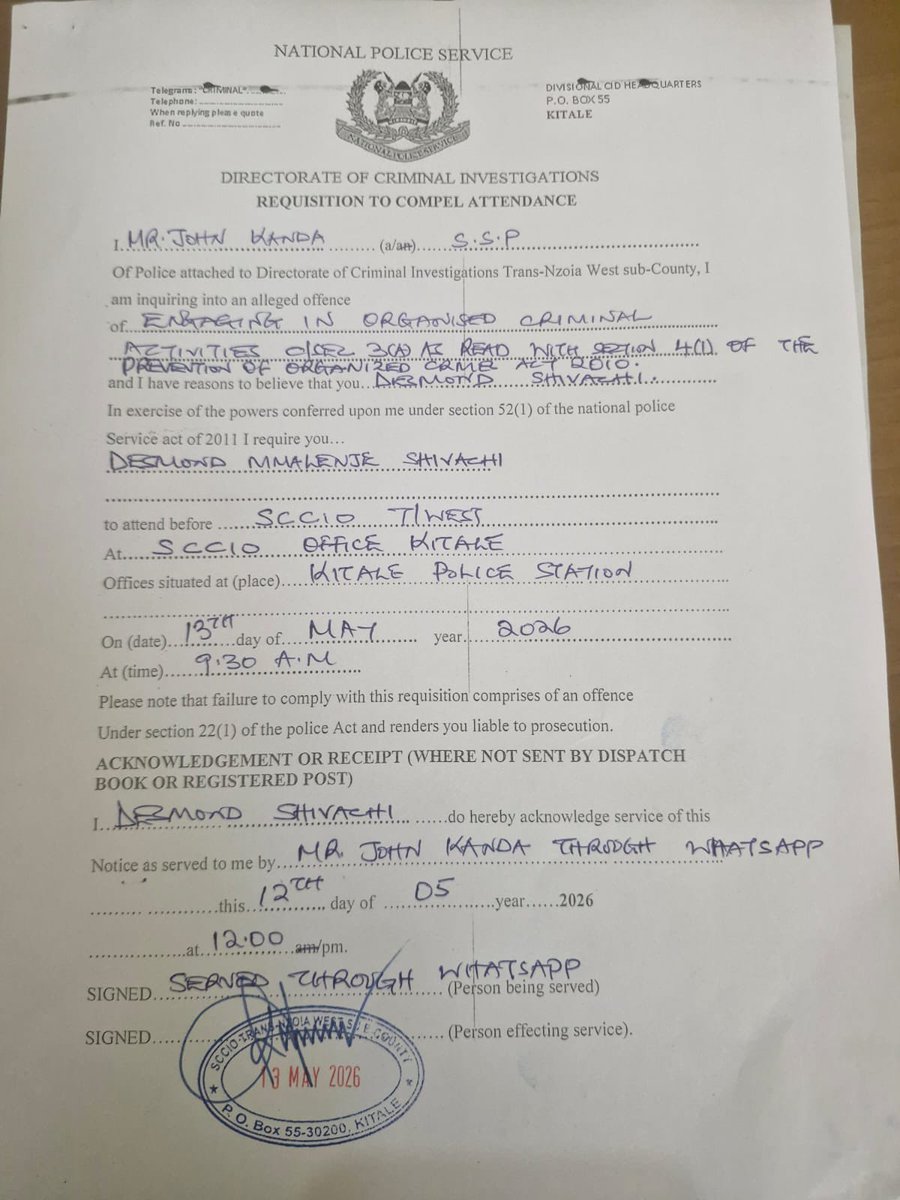 NATIONAL POLICE SERVICE
Telegrams: "CRIMINAL"
Telephone:
When replying please quote
Ref. No
DIVISIONAL CID HEADQUARTERS
P.O. BOX 55
KITALE
NATIONAL POLICE SERVICE
DIRECTORATE OF CRIMINAL INVESTIGATIONS
REQUISITION TO COMPEL ATTENDANCE
I. MR. JOHN KANDA (a/an) S.S.P
Of Police attached to Directorate of Criminal Investigations Trans-Nzoia West sub-County, I
am inquiring into an alleged offence
of ENGAGING IN ORGANISED CRIMINAL
ACTIVITIES C/SEC 3(A) AS READ WITH SECTION 4(1) OF THE
PREVENTION OF ORGANIZED CRIME ACT 2010.
and I have reasons to believe that you DESMOND SHIVACHI
In exercise of the powers conferred upon me under section 52(1) of the national police
Service act of 2011 I require you...
DESMOND MMALENJE SHIVACHI
to attend before SCCIO T/WEST
At SCCIO OFFICE KITALE
Offices situated at (place) KITALE POLICE STATION
On (date) 13TH day of MAY year 2026
At (time) 9.30 A.M
Please note that failure to comply with this requisition comprises of an offence
Under section 22(1) of the police Act and renders you liable to prosecution.
ACKNOWLEDGEMENT OR RECEIPT (WHERE NOT SENT BY DISPATCH
BOOK OR REGISTERED POST)
I DESMOND SHIVACHI do hereby acknowledge service of this
Notice as served to me by MR. JOHN KANDA THROUGH WHATSAPP
this 12TH day of 05 year 2026
at 12.00 am/pm.
SIGNED SERVED THROUGH WHATSAPP (Person being served)
SIGNED (Person effecting service).
SCCIO-TRANS-NZOIA WEST SUB COUNTY
13 MAY 2026
P. O. Box 55-30200, KITALE